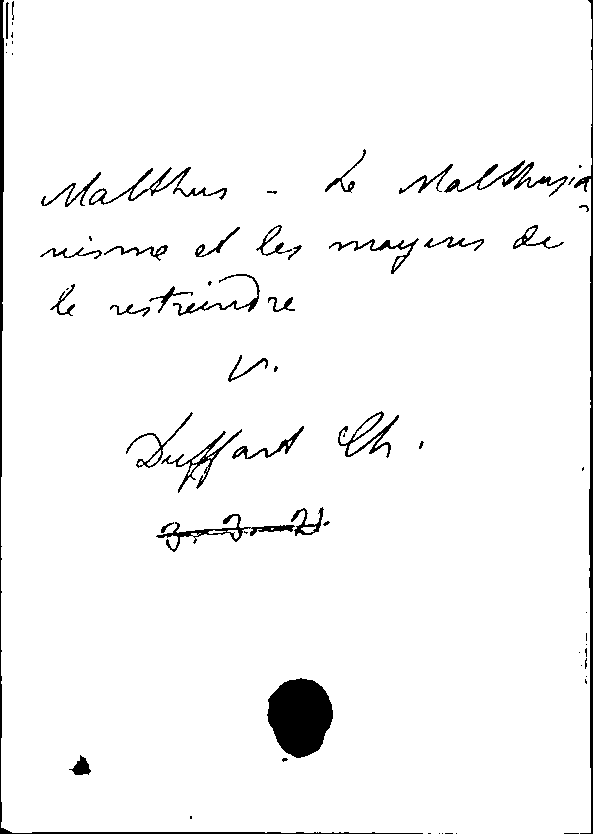 Malthus - Le Malthusia
nisme et les moyens de
le restreindre
V.
Duffart Ch.
3.3.21.